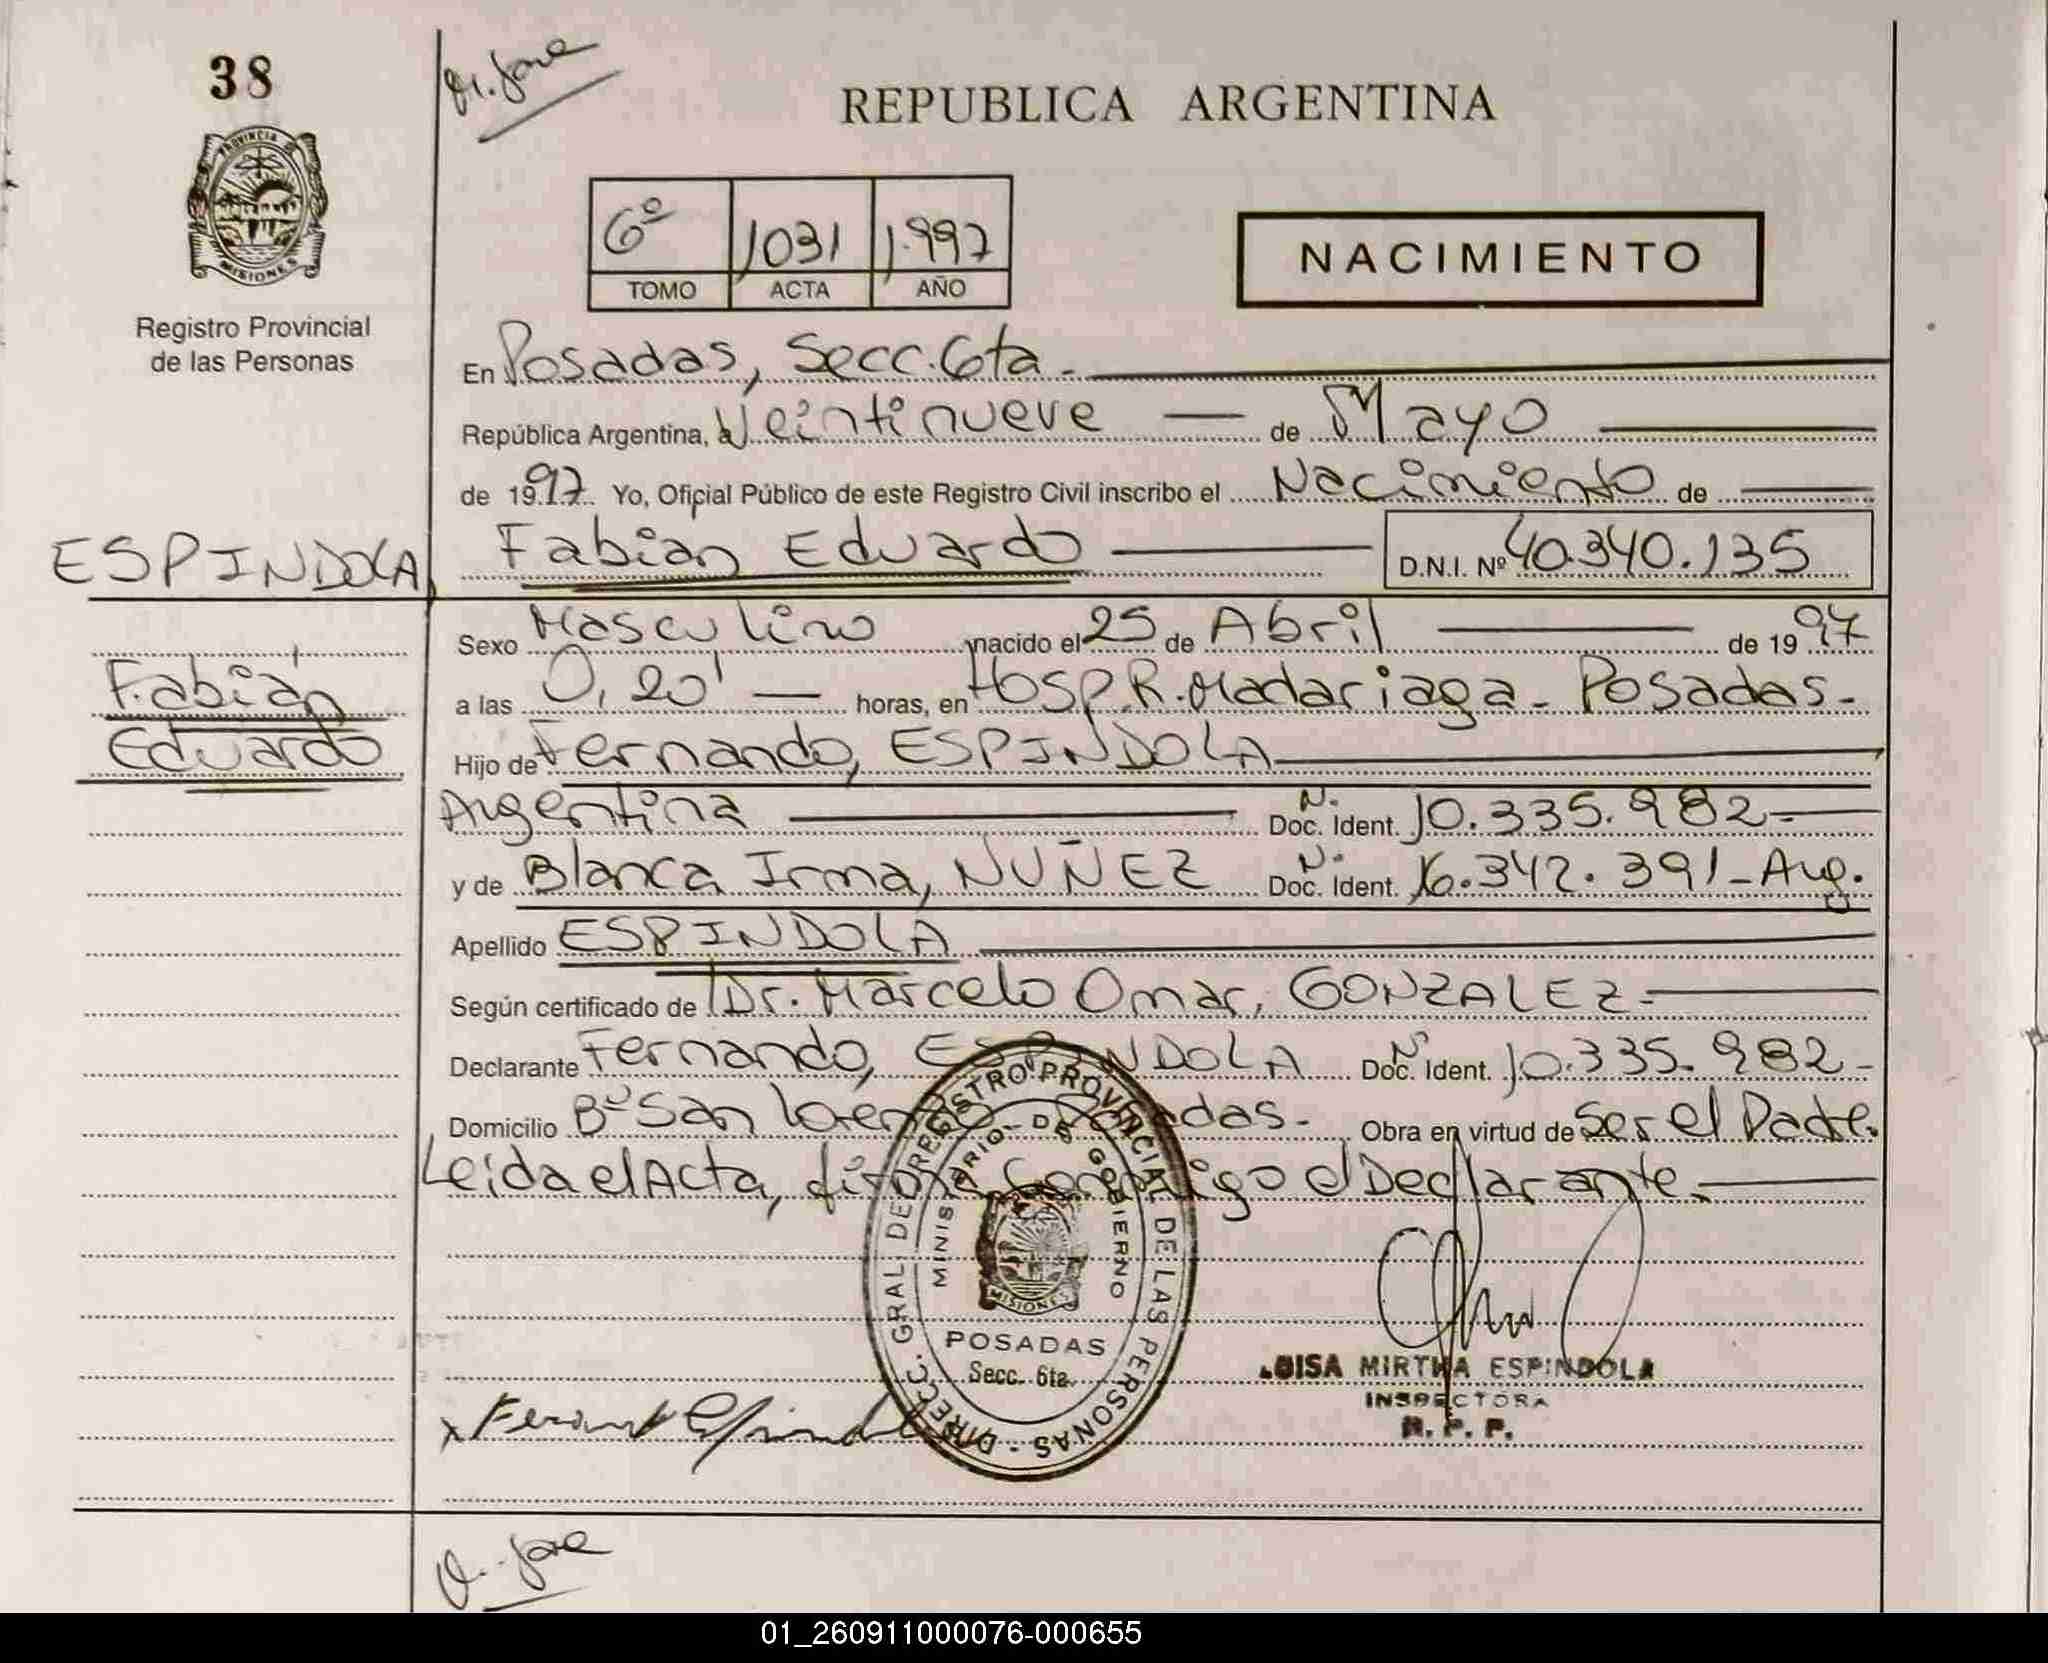 38
REPUBLICA ARGENTINA
PROVINCIA DE
MISIONES
Registro Provincial
de las Personas
6º 1031 1.997
TOMO ACTA AÑO
NACIMIENTO
En Posadas, Secc. 6ta.
República Argentina, a Veintinueve de Mayo
de 1997 Yo, Oficial Público de este Registro Civil inscribo el Nacimiento de
ESPINDOLA
Fabián Eduardo D.N.I. Nº 40.340.135
Fabián
Eduardo
Sexo Masculino nacido el 25 de Abril de 1997
a las 0,20' horas, en Hosp. R. Madariaga - Posadas.
Hijo de Fernando, ESPINDOLA
Argentina N. Doc. Ident. 10.335.982
y de Blanca Irma, NUÑEZ N. Doc. Ident. 16.342.391 - Arg.
Apellido ESPINDOLA
Según certificado de Dr. Marcelo Omar, GONZALEZ
Declarante Fernando, ESPINDOLA N Doc. Ident. 10.335.982
Domicilio Bº San Lorenzo Posadas. Obra en virtud de Ser el Padre.
Leida el Acta, firma Conmigo el Declarante.
DIRECC. GRAL. DE REGISTRO PROVINCIAL DE LAS PERSONAS
MINISTERIO DE GOBIERNO
MISIONES
POSADAS
Secc. 6ta.
LUISA MIRTHA ESPINDOLA
INSPECTORA
R. P. P.
x Fernando Espindola
01_260911000076-000655